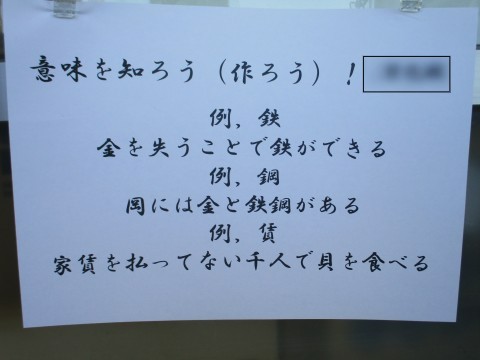 意味を知ろう（作ろう）！
例，鉄
金を失うことで鉄ができる
例，鋼
岡には金と鉄鋼がある
例，賃
家賃を払ってない千人で貝を食べる